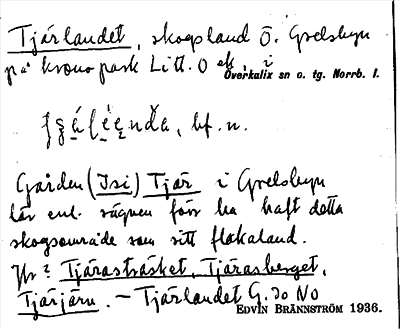 Tjärlandet, skogsland Ö. Grelsbyn
på kronopark Litt. O etc, i
Överkalix sn o. tg. Norrb. l.
bf. n.
Gården (Isi) Tjär i Grelsbyn
lär enl. sägnen förr ha haft detta
skogsområde som sitt flakaland.
Tjärasträsket, Tjärasberget,
Tjärjärn. – Tjärlandet G. do No
EDVIN BRÄNNSTRÖM 1936.